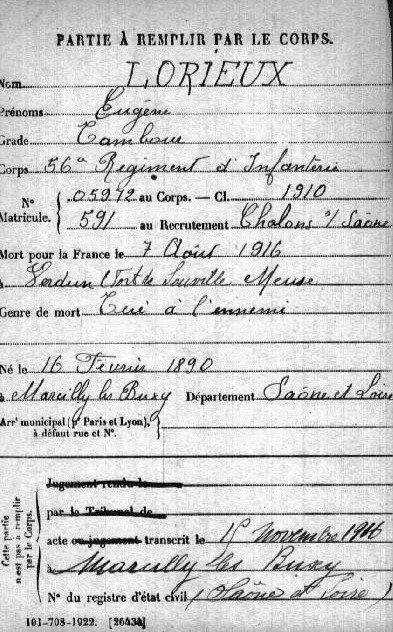 PARTIE À REMPLIR PAR LE CORPS.
Nom LORIEUX
Prénoms Eugène
Grade Tambour
Corps 56e Régiment d'Infanterie
N° Matricule. { 05972 au Corps. — Cl. 1910
591 au Recrutement Chalons s/ Saône
Mort pour la France le 7 Août 1916
à Verdun (Fort de Souville Meuse
Genre de mort Tué à l'ennemi
Né le 16 Février 1890
à Marcilly les Buxy Département Saône et Loire
Arrt municipal (pr Paris et Lyon), à défaut rue et N°. }
Cette partie n'est pas à remplir par le Corps.
Jugement rendu le
par le Tribunal de
acte ou jugement transcrit le 15 Novembre 1916
à Marcilly les Buxy
N° du registre d'état civil (Saône et Loire)
101-708-1922. [26434]